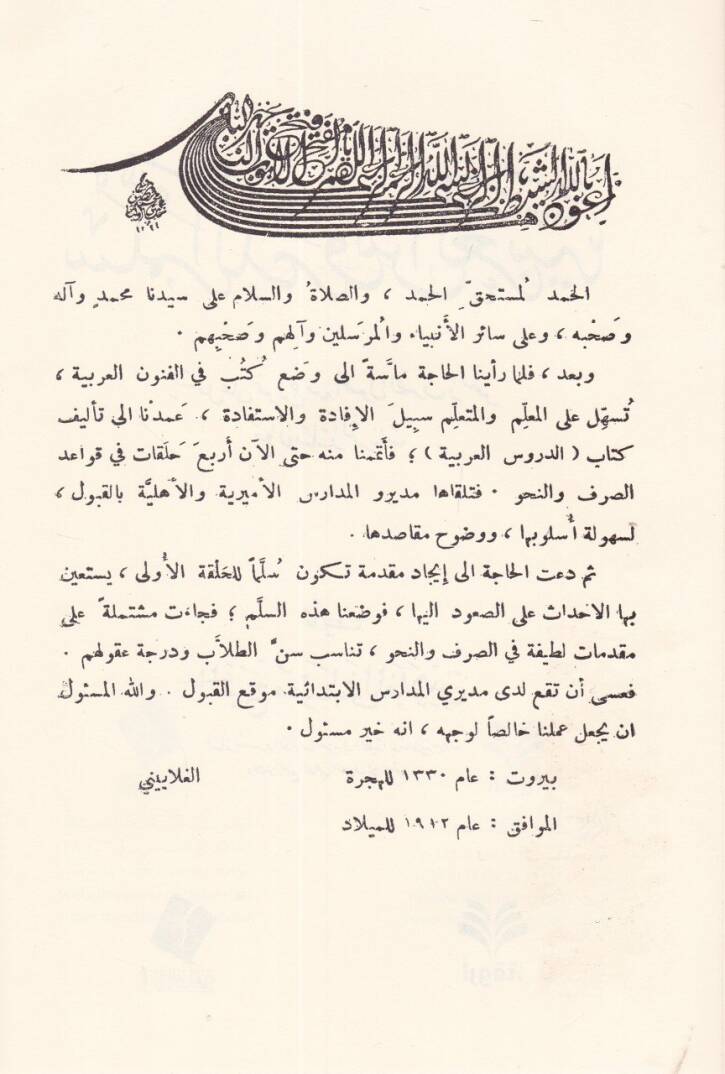 أعوذ بالله من الشيطان الرجيم بسم الله الرحمن الرحيم
الحمد لمستحقّ الحمد ، والصلاةُ والسلام على سيدنا محمدٍ وآله
وصَحْبه ، وعلى سائر الأَنبياء والمُرسَلين وآلهم وصَحْبِهم .
وبعد ، فلما رأينا الحاجة ماسَّةً الى وَضع كُتُب في الفنون العربية ،
تُسهّل على المعلِّم والمتعلِّم سبيلَ الإِفادة والاستفادة ، عَمدْنا الى تأليف
كتاب ( الدروس العربية ) ؛ فأتممنا منه حتى الآن أربعَ حَلَقات في قواعد
الصرف والنحو . فتلقاها مديرو المدارس الأميرية والأهليَّة بالقبول ،
لسهولة أُسلوبها ، ووضوح مقاصدها .
ثم دعت الحاجة الى إيجاد مقدمة تكون سُلَّماً للحَلْقة الأُولى ، يستعين
بها الاحداث على الصعود اليها ، فوضعنا هذه السلَّم ؛ فجاءت مشتملةً على
مقدمات لطيفة في الصرف والنحو ، تناسب سنَّ الطلاَّب ودرجة عقولهم .
فعسى أن تقع لدى مديري المدارس الابتدائية موقع القبول . والله المسئول
ان يجعل عملنا خالصاً لوجهه ، انه خير مسئول .
بيروت : عام ١٣٣٠ للهجرة الغلاييني
الموافق : عام ١٩١٢ للميلاد